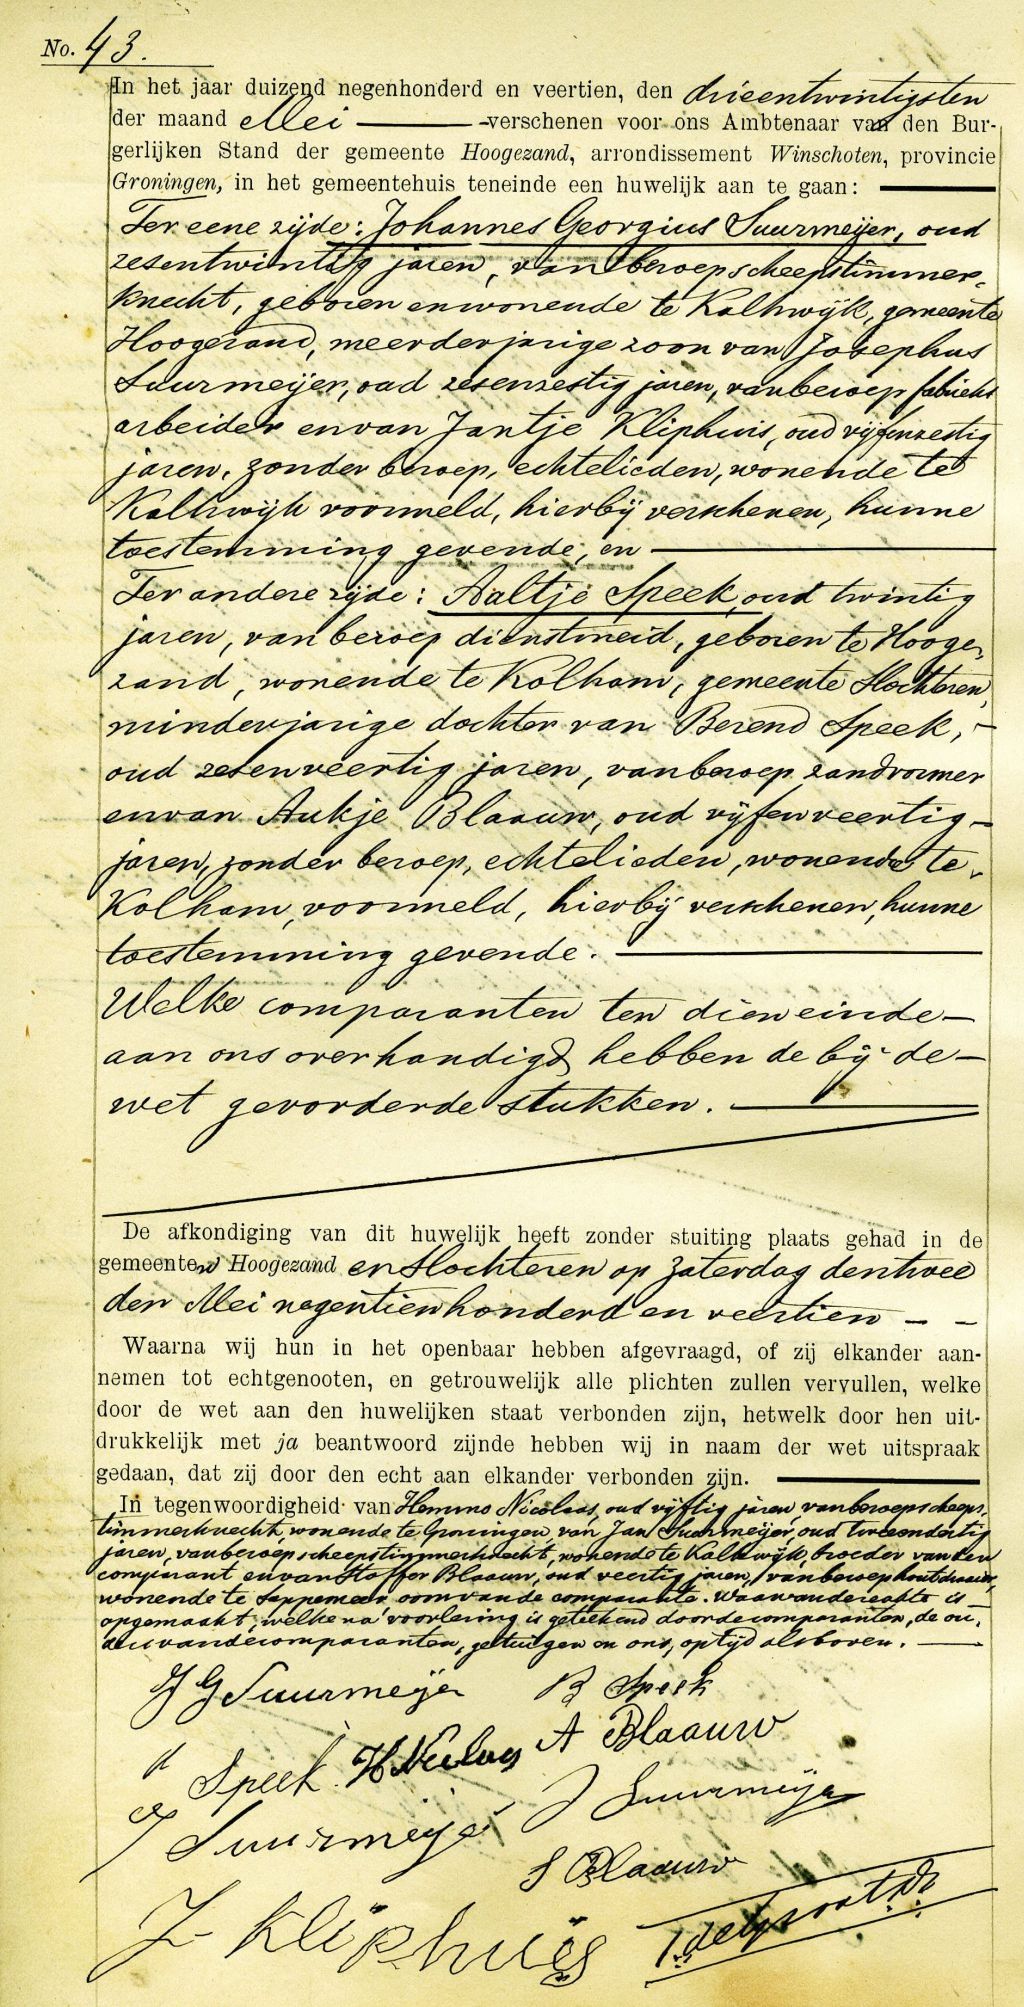 No. 43.
In het jaar duizend negenhonderd en veertien, den drieentwintigsten
der maand Mei verschenen voor ons Ambtenaar van den Bur-
gerlijken Stand der gemeente Hoogezand, arrondissement Winschoten, provincie
Groningen, in het gemeentehuis teneinde een huwelijk aan te gaan:
Ter eene zijde: Johannes Georgius Suurmeijer, oud
zesentwintig jaren, van beroep scheepstimmer-
knecht, geboren en wonende te Kalkwijk, gemeente
Hoogezand, meerderjarige zoon van Josephus
Suurmeijer, oud zesenzestig jaren, van beroep fabrieks
arbeider en van Jantje Kliphuis, oud vijfenzestig
jaren, zonder beroep, echtelieden, wonende te
Kalkwijk voormeld, hierbij verschenen, hunne
toestemming gevende, en
Ter andere zijde: Aaltje Speek, oud twintig
jaren, van beroep dienstmeid, geboren te Hooge-
zand, wonende te Kolham, gemeente Slochteren,
minderjarige dochter van Berend Speek,
oud zesenveertig jaren, van beroep zandvormer
en van Aukje Blaauw, oud vijfenveertig
jaren, zonder beroep, echtelieden, wonende te
Kolham, voormeld, hierbij verschenen, hunne
toestemming gevende.
Welke comparanten ten dien einde
aan ons overhandigd hebben de bij de
wet gevorderde stukken.
De afkondiging van dit huwelijk heeft zonder stuiting plaats gehad in de
gemeenten Hoogezand en Slochteren op Zaterdag den twee
den Mei negentienhonderd en veertien
Waarna wij hun in het openbaar hebben afgevraagd, of zij elkander aan-
nemen tot echtgenooten, en getrouwelijk alle plichten zullen vervullen, welke
door de wet aan den huwelijken staat verbonden zijn, hetwelk door hen uit-
drukkelijk met ja beantwoord zijnde hebben wij in naam der wet uitspraak
gedaan, dat zij door den echt aan elkander verbonden zijn.
In tegenwoordigheid van Hemmo Nicolaas, oud vijftig jaren, van beroep scheeps
timmerknecht, wonende te Groningen, van Jan Suurmeijer, oud tweeendertig
jaren, van beroep scheepstimmerknecht, wonende te Kalkwijk, broeder van den
comparant en van Stoffer Blaauw, oud veertig jaren, van beroep houtdraaier,
wonende te Sappemeer, oom van de comparante. Waarvan deze akte is
opgemaakt, welke na voorlezing is geteekend door de comparanten, de ou-
ders van de comparanten, getuigen en ons, op tijd als boven.
J G Suurmeijer B Speek
A Speek H Nicolaas A Blaauw
J Suurmeijer J Suurmeijer
S Blaauw
J Kliphuis